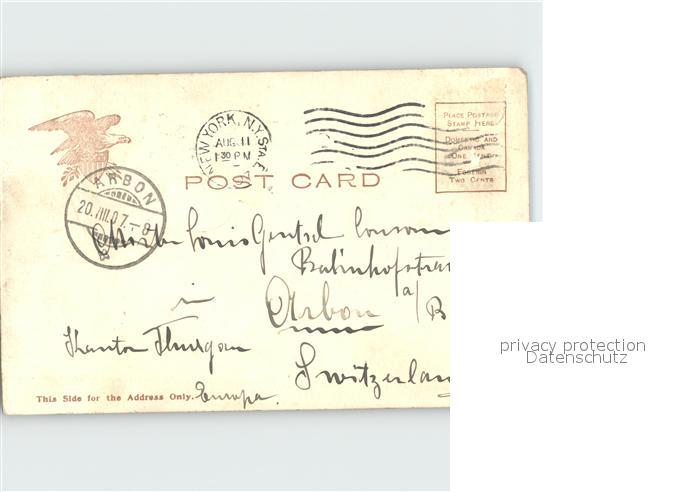 NEW YORK, N.Y. STA. E
AUG 11
1 30 PM
PLACE POSTAGE
STAMP HERE
DOMESTIC AND
CANADA
ONE CENT
FOREIGN
TWO CENTS
POST CARD
ARBON
20.VIII.07.-8
Louis Gentsch
Bahnhofstras
in Arbon a/B
Kanton Thurgau
Switzerland
This Side for the Address Only.
Europa.
privacy protection
Datenschutz